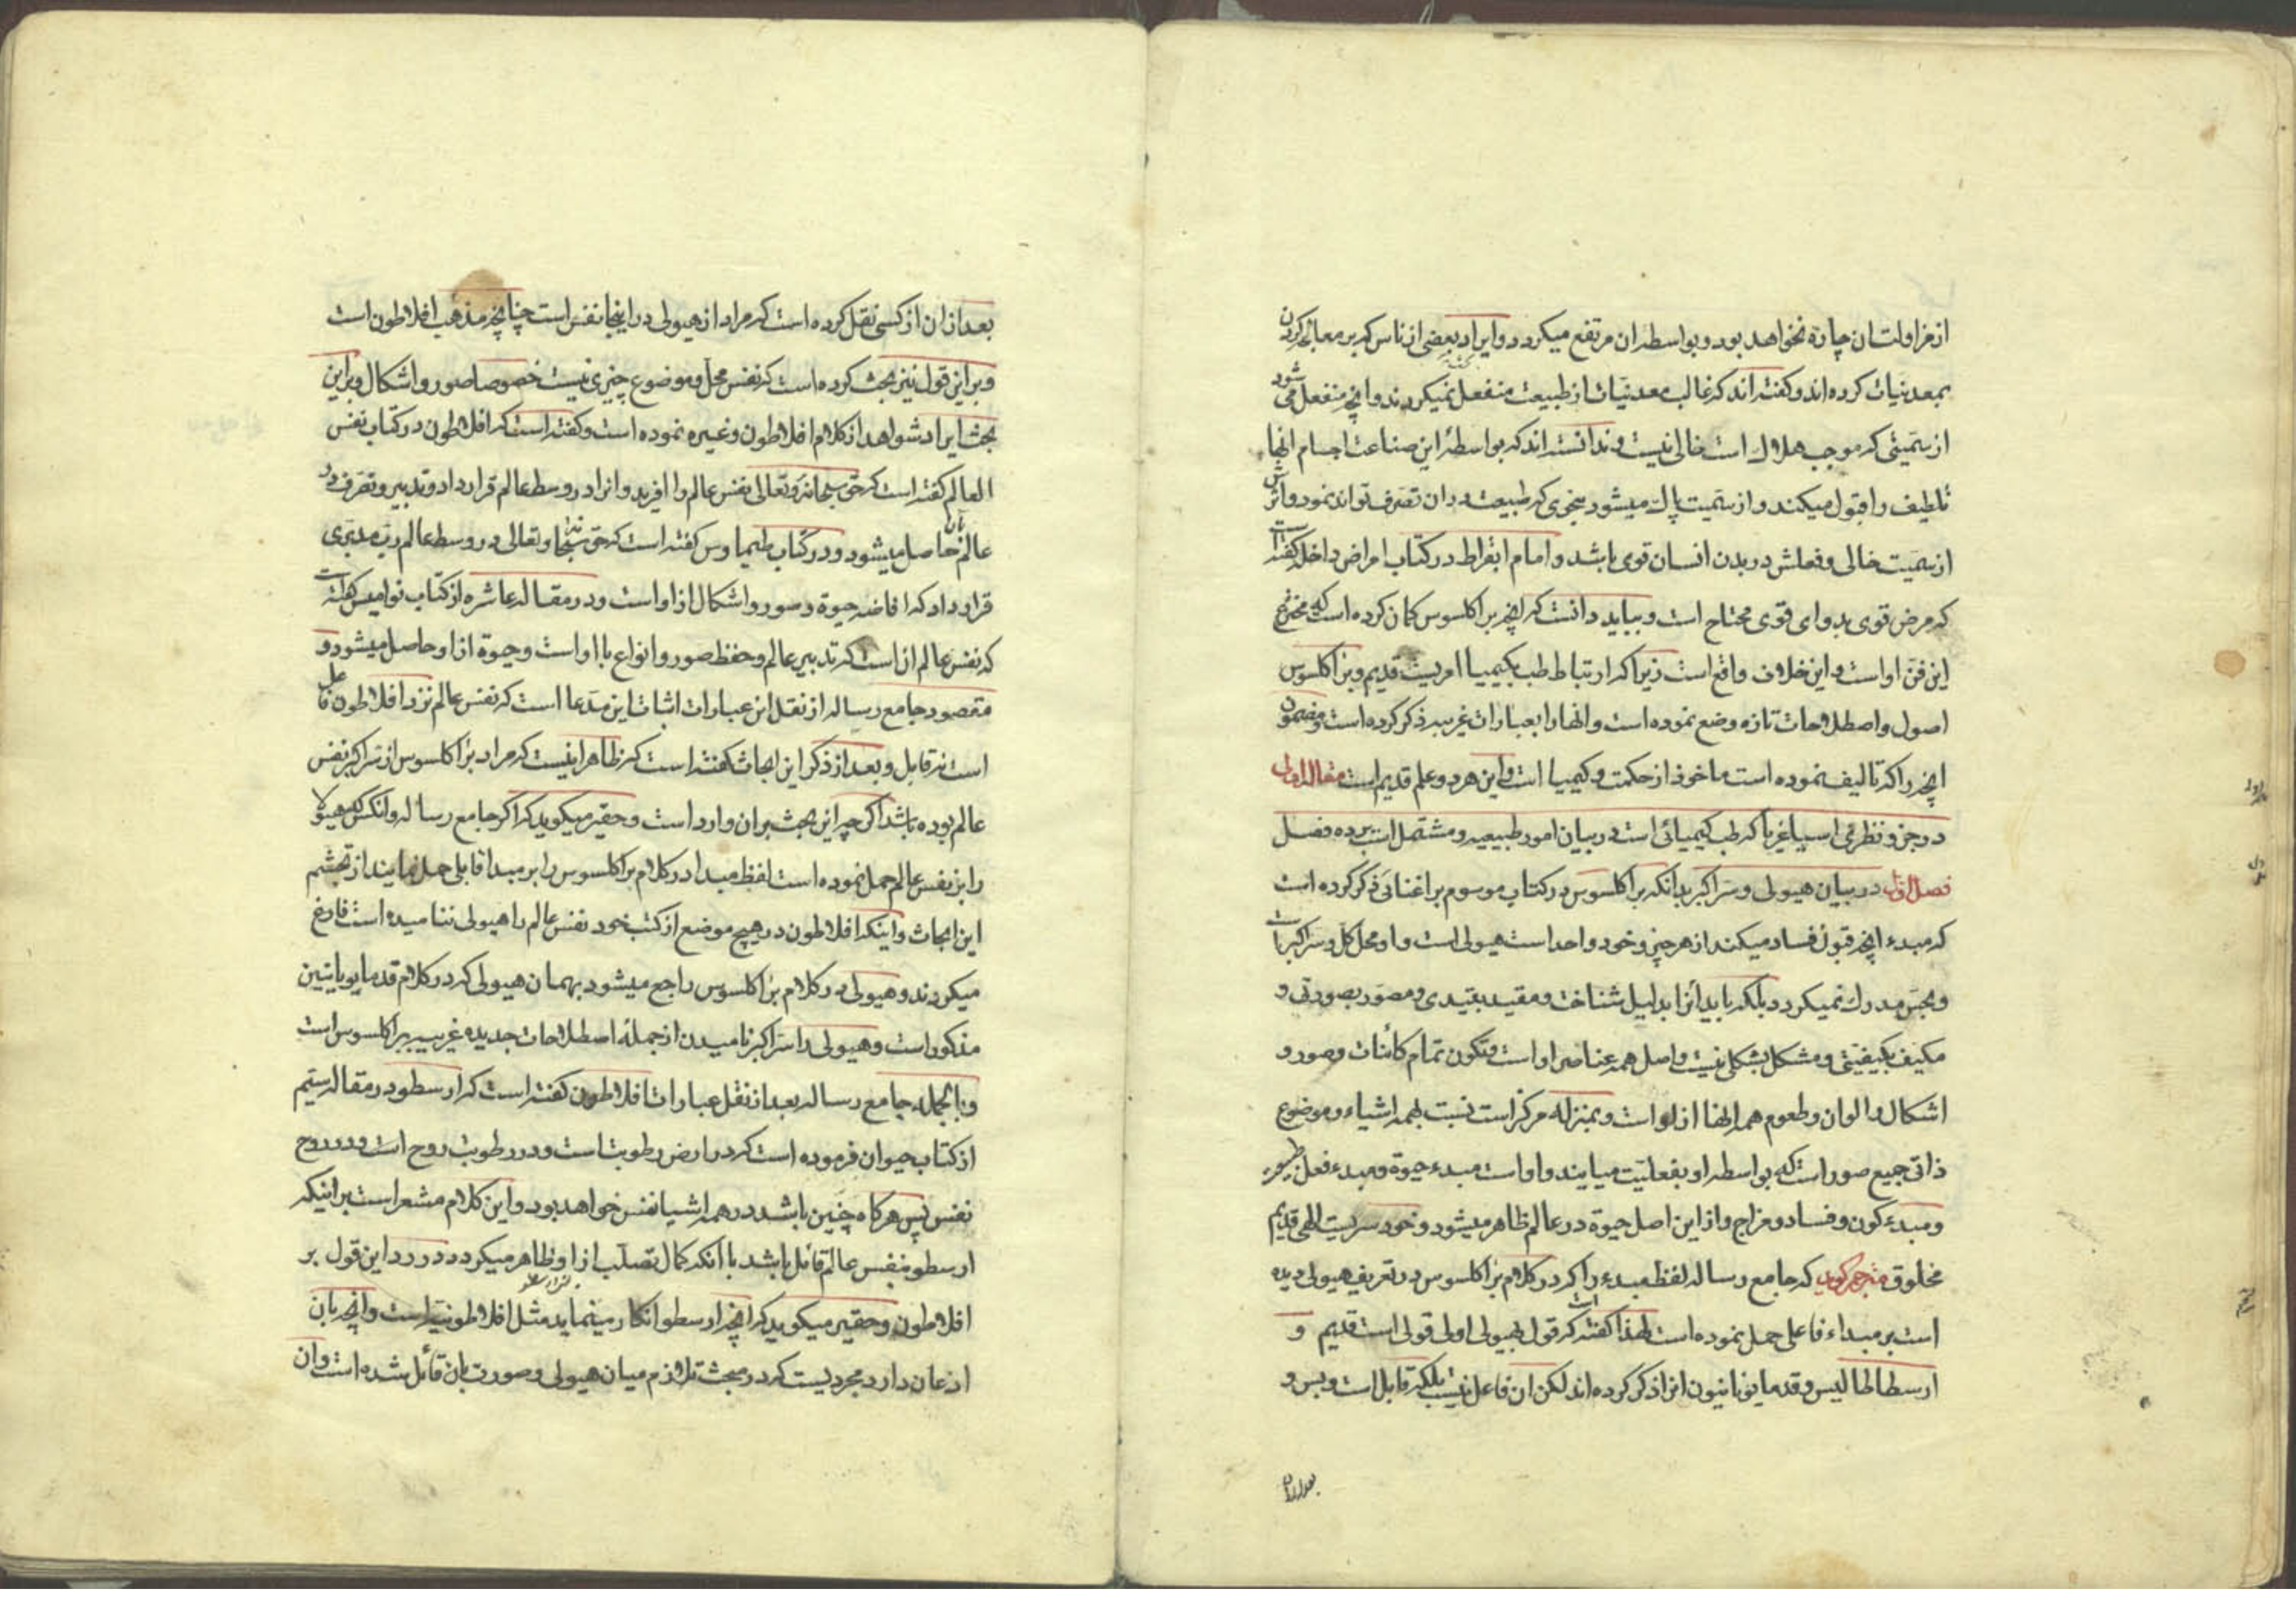 از مزاولت ان چاره نخواهد بود و بواسطه ان مرتفع میکردد و ایراد بعضی از ناس که بر معالجه کردن
بمعدنیات کرده اند و کفته اند که غالب معدنیات از طبیعت منفعل نمیکردند و انچه منفعل می شود
از سمیتی که موجب هلاک است خالی نیست و ندانسته اند که بواسطهٔ این صناعت اجسام انها
تلطیف را قبول میکنند و از سمیت پاک میشود بنحوی که طبیعت در ان تصرف تواند نمود و اثرش
از سمیت خالی و فعلش در بدن انسان قوی باشد و امام ابقراط در کتاب امراض داخله کفته است
که مرض قوی بدوای قوی محتاج است و بباید دانست که انچه براکلسوس کمان کرده است که مخترع
این فن او است و این خلاف واقع است زیرا که ارتباط طب بکیمیا امریست قدیم و براکلسوس
اصول و اصطلاحات تازه وضع نموده است و انها را بعبارات غریبه ذکر کرده است و مضمون
انچه را که تالیف نموده است ماخوذ از حکمت و کیمیا است و این هر دو علم قدیم است مقاله اولی
در جزو نظری اسپاغیریا که طب کیمیائی است در بیان امور طبیعیه و مشتمل است بر ده فصل
فصل اول در بیان هیولی و سر اکبر بدانکه براکلسوس در کتاب موسوم براغنانی ذکر کرده است
که مبدء انچه قبول فساد میکند از هر چیز و خود واحد است هیولی است و او محل کل و سر اکبر است
و بحس مدرک نمیکردد بلکه باید انرا بدلیل شناخت و مقید بقیدی و مصور بصورتی و
مکیف بکیفیتی و مشکل بشکلی نیست و اصل همه عناصر او است و تکون تمام کائنات و صور و
اشکال و الوان و طعوم همه انها از او است و بمنزله مرکز است نسبت بهمه اشیاء و موضوع
ذاتی جمیع صور است که بواسطه او بفعلیت میایند و او است مبدء حیوة و مبدء فعل
و مبدء کون و فساد و مزاج و از این اصل حیوة در عالم ظاهر میشود و خود سریست الهی قدیم
مخلوق مترجم کوید که جامع رساله لفظ مبدء را که در کلام براکلسوس در تعریف هیولی دیده
است بر مبداء فاعلی حمل نموده است لهذا کفته است که قول بهیولی اولی قولی است قدیم و
ارسطاطالیس و قدما یونانیون انرا ذکر کرده اند لکن ان فاعل نیست بلکه قابل است و بس و
بعد از ان
بعد از ان از کسی نقل کرده است که مراد از هیولی در اینجا نفس است چنانچه مذهب افلاطون است
و بر این قول نیز بحث کرده است که نفس محل و موضوع چیزی نیست خصوصا صور و اشکال و بر این
بحث ایراد شواهد از کلام افلاطون و غیره نموده است و کفته است که افلاطون در کتاب نفس
العالم کفته است که حق سبحانه و تعالی نفس عالم را افرید و انرا در وسط عالم قرار داد و تدبیر و تصرف در
عالم بان حاصل میشود و در کتاب طیماوس کفته است که حق سبحانه و تعالی در وسط عالم رب مدبری
قرار داد که افاضه حیوة و صور و اشکال از او است و در مقاله عاشره از کتاب نوامیس کفته است
که نفس عالم ان است که تدبیر عالم و حفظ صور و انواع با او است و حیوة از او حاصل میشود و
مقصود جامع رساله از نقل این عبارات اثبات این مدعا است که نفس عالم نزد افلاطون فاعل
است نه قابل و بعد از ذکر این ابحاث کفته است که ظاهر اینست که مراد براکلسوس از سر اکبر نفس
عالم بوده باشد اکر چه این بحث بر ان وارد است و حقیر میکوید که اکر جامع رساله و انکس که هیولا
را بر نفس عالم حمل نموده است لفظ مبدا در کلام براکلسوس را بر مبدا قابلی حمل نمایند از تجشم
این ابحاث و اینکه افلاطون در هیچ موضع از کتب خود نفس عالم را هیولی ننامیده است فارغ
میکردند و هیولی در کلام براکلسوس راجع میشود بهمان هیولی که در کلام قدما یونانیین
مذکور است و هیولی را سر اکبر نامیدن از جمله اصطلاحات جدیده غریبه براکلسوس است
و بالجمله جامع رساله بعد از نقل عبارات افلاطون کفته است که ارسطو در مقاله سیم
از کتاب حیوان فرموده است که در ارض رطوبت است و در رطوبت روح است و در روح
نفس پس هر کاه چنین باشد در همه اشیا نفس خواهد بود و این کلام مشعر است بر اینکه
ارسطو بنفس عالم قائل باشد با انکه کمال تصلب از او ظاهر میکردد در رد این قول بر
افلاطون و حقیر میکوید که انچه ارسطو انکار مینماید مثل افلاطونیه است و انچه بان
اذعان دارد مجردیست که در مبحث تلازم میان هیولی و صورت بان قائل شده است و ان